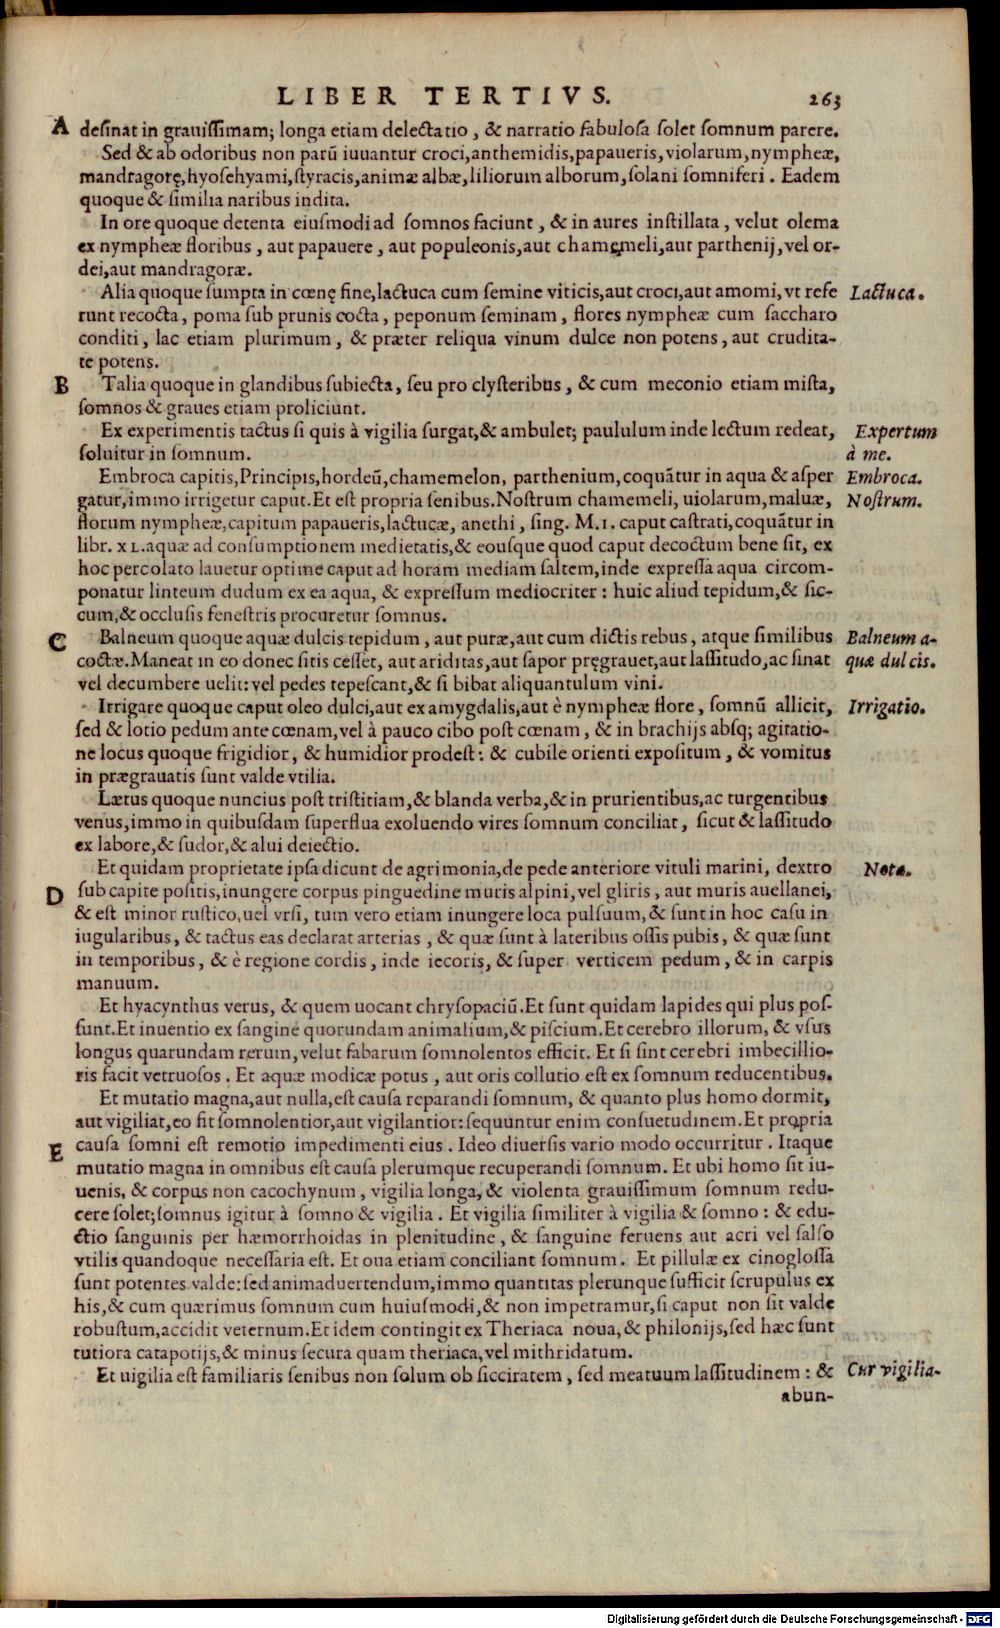 LIBER TERTIVS. 263
A desinat in grauissimam; longa etiam delectatio, & narratio fabulosa solet somnum parere.
Sed & ab odoribus non parū iuuantur croci, anthemidis, papaueris, violarum, nympheæ,
mandragorę, hyoschyami, styracis, animæ albæ, liliorum alborum, solani somniferi. Eadem
quoque & similia naribus indita.
In ore quoque detenta eiusmodi ad somnos faciunt, & in aures instillata, velut olema
ex nympheæ floribus, aut papauere, aut populeonis, aut chamęmeli, aut parthenij, vel or-
dei, aut mandragoræ.
Alia quoque sumpta in cœnę fine, lactuca cum semine viticis, aut croci, aut amomi, vt refe Lactuca.
runt recocta, poma sub prunis cocta, peponum seminam, flores nympheæ cum saccharo
conditi, lac etiam plurimum, & præter reliqua vinum dulce non potens, aut crudita-
te potens.
B Talia quoque in glandibus subiecta, seu pro clysteribus, & cum meconio etiam mista,
somnos & graues etiam proliciunt.
Ex experimentis tactus si quis à vigilia surgat, & ambulet; paululum inde lectum redeat, Expertum
soluitur in somnum. à me.
Embroca capitis, Principis, hordeū, chamemelon, parthenium, coquātur in aqua & asper Embroca.
gatur, immo irrigetur caput. Et est propria senibus. Nostrum chamemeli, uiolarum, maluæ, Nostrum.
florum nympheæ, capitum papaueris, lactucæ, anethi, sing. M. 1. caput castrati, coquātur in
libr. XL. aquæ ad consumptionem medietatis, & eousque quod caput decoctum bene sit, ex
hoc percolato lauetur optime caput ad horam mediam saltem, inde expressa aqua circom-
ponatur linteum dudum ex ea aqua, & expressum mediocriter: huic aliud tepidum, & sic-
cum, & occlusis fenestris procuretur somnus.
C Balneum quoque aquæ dulcis tepidum, aut puræ, aut cum dictis rebus, atque similibus Balneum a-
coctæ. Maneat in eo donec sitis cesset, aut ariditas, aut sapor pręgrauet, aut lassitudo, ac sinat quæ dulcis.
vel decumbere uelit: vel pedes tepescant, & si bibat aliquantulum vini.
Irrigare quoque caput oleo dulci, aut ex amygdalis, aut è nympheæ flore, somnū allicit, Irrigatio.
sed & lotio pedum ante cœnam, vel à pauco cibo post cœnam, & in brachijs absq; agitatio-
ne locus quoque frigidior, & humidior prodest: & cubile orienti expositum, & vomitus
in prægrauatis sunt valde vtilia.
Lætus quoque nuncius post tristitiam, & blanda verba, & in prurientibus, ac turgentibus
venus, immo in quibusdam superflua exoluendo vires somnum conciliat, sicut & lassitudo
ex labore, & sudor, & alui deiectio.
Et quidam proprietate ipsa dicunt de agrimonia, de pede anteriore vituli marini, dextro Nota.
D sub capite positis, inungere corpus pinguedine muris alpini, vel gliris, aut muris auellanei,
& est minor rustico, uel vrsi, tum vero etiam inungere loca pulsuum, & sunt in hoc casu in
iugularibus, & tactus eas declarat arterias, & quæ sunt à lateribus ossis pubis, & quæ sunt
in temporibus, & è regione cordis, inde iecoris, & super verticem pedum, & in carpis
manuum.
Et hyacynthus verus, & quem uocant chrysopaciū. Et sunt quidam lapides qui plus pos-
sunt. Et inuentio ex sangine quorundam animalium, & piscium. Et cerebro illorum, & vsus
longus quarundam rerum, velut fabarum somnolentos efficit. Et si sint cerebri imbecillio-
ris facit vetruosos. Et aquæ modicæ potus, aut oris collutio est ex somnum reducentibus.
Et mutatio magna, aut nulla, est causa reparandi somnum, & quanto plus homo dormit,
aut vigiliat, eo fit somnolentior, aut vigilantior: sequuntur enim consuetudinem. Et propria
E causa somni est remotio impedimenti eius. Ideo diuersis vario modo occurritur. Itaque
mutatio magna in omnibus est causa plerumque recuperandi somnum. Et ubi homo sit iu-
uenis, & corpus non cacochynum, vigilia longa, & violenta grauissimum somnum redu-
cere solet; somnus igitur à somno & vigilia. Et vigilia similiter à vigilia & somno: & edu-
ctio sanguinis per hæmorrhoidas in plenitudine, & sanguine feruens aut acri vel salso
vtilis quandoque necessaria est. Et oua etiam conciliant somnum. Et pillulæ ex cinoglossa
sunt potentes valde: sed animaduertendum, immo quantitas plerunque sufficit scrupulus ex
his, & cum quærimus somnum cum huiusmodi, & non impetramur, si caput non sit valde
robustum, accidit veternum. Et idem contingit ex Theriaca noua, & philonijs, sed hæc sunt
tutiora catapotijs, & minus secura quam theriaca, vel mithridatum.
Et uigilia est familiaris senibus non solum ob siccitatem, sed meatuum lassitudinem: & Cur vigilia-
abun-
Digitalisierung gefördert durch die Deutsche Forschungsgemeinschaft - DFG